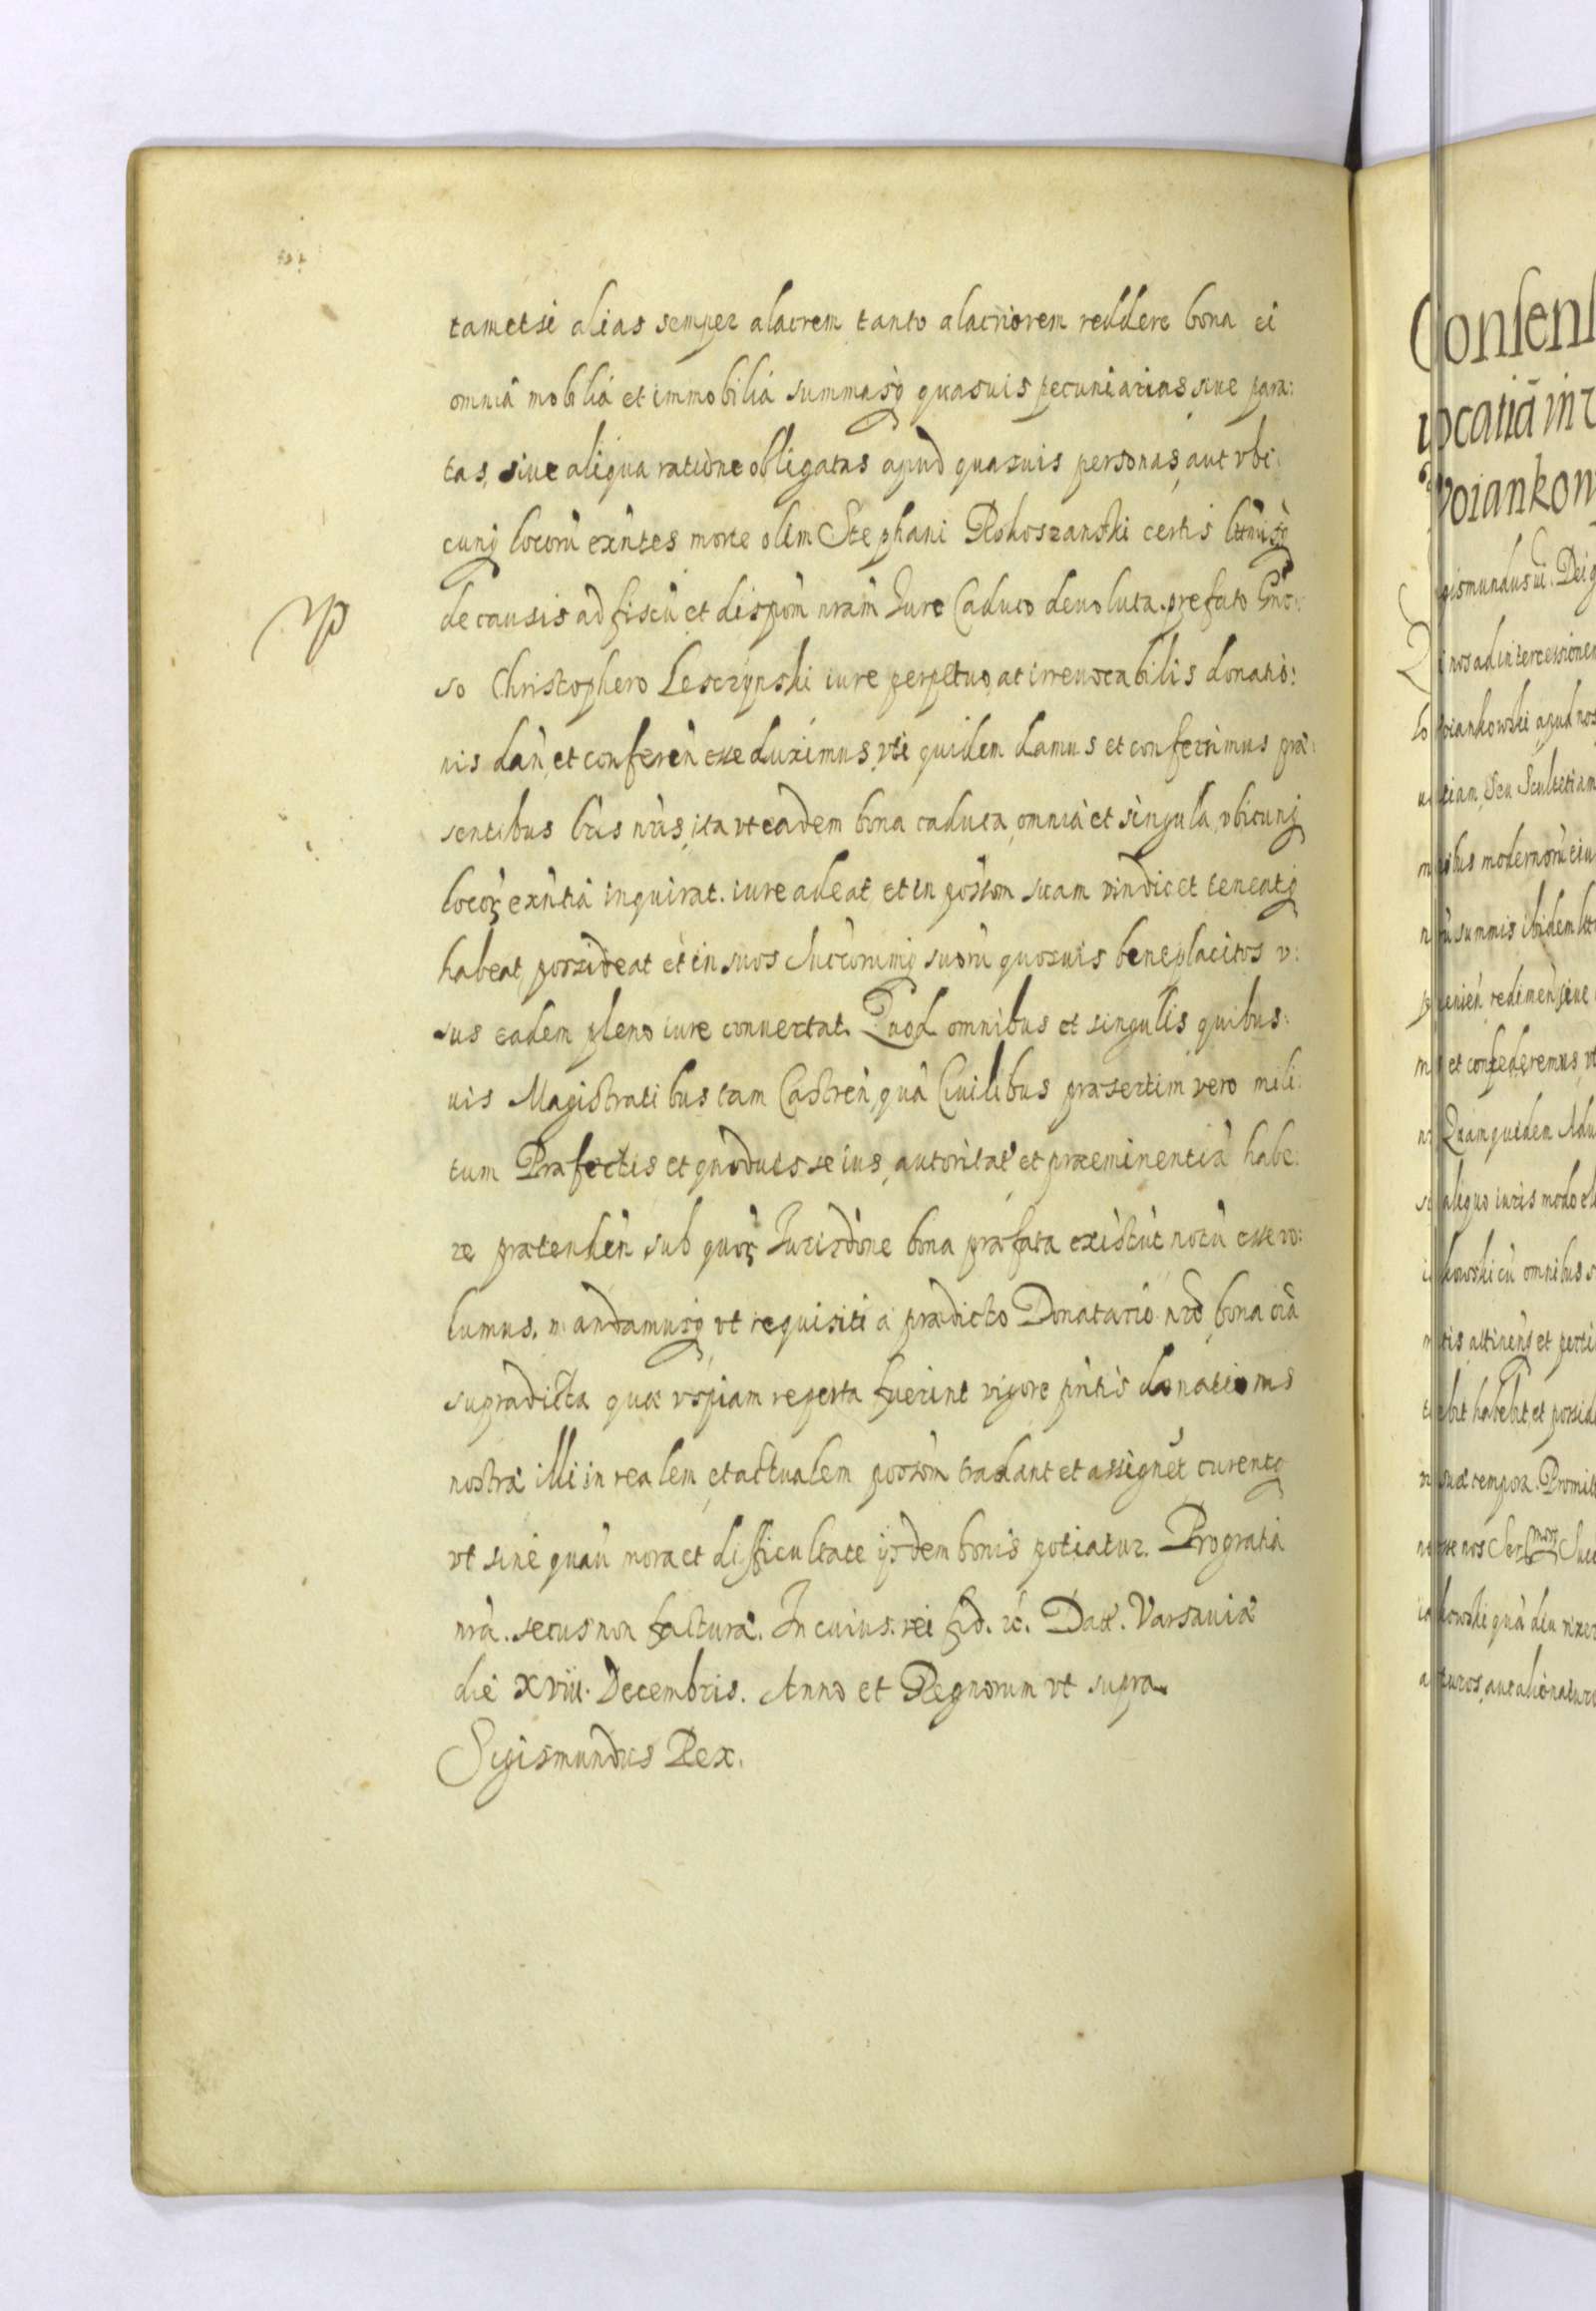 tametsi alias semper alacrem tanto alacriorem reddere bona ei
omnia mobilia et immobilia summasq quasuis pecuniarias siue para:
tas, siue aliqua ratione obligatas apud quasuis personas, aut vbi:
cunq locorū exñtes morte olim Stephani Rokoszanski certis
de causis ad fiscū et dispoñ nrām Iure Caduco deuoluta prefato Gño:
so Christophero Lesczynski iure perpetuo, at irreuocabilis donatio:
nis dañ et conferēn esse duximus, vti quidem damus et conferimus præ:
sentibus lris nris, ita vt eadem bona caduca, omnia et singula, vbicunq
locoꝝ exñtia inquirat. iure adeat, et in possōm suam vindicet teneatq
habeat, possideat et in suos Succōrumq suorū quosuis beneplacitos v:
sus eadem pleno iure conuertat. Quod omnibus et singulis quibus:
uis Magistratibus tam Castreñ, quā Ciuilibus præsertim vero mili:
tum Præfectis et quoduis se ius, autoritatē et præeminentiā habe:
re prætendeñ sub quoꝝ Iurisdōne bona præfata existūt notū esse vo:
lumus. mandamusq vt requisiti a prædicto Donatario nrō bona oīa
supradicta quæ vspiam reperta fuerint vigore pñtis donationis
nostræ illi in realem et actualem possōm tradant et assignēt curentq
vt sine quaū mora et difficultate ijsdem bonis potiatur. Pro gratia
nrā. secus non facturi. In cuius rei fid. &c. Dat. Varsauiæ
die XVIII. Decembris. Anno et Regnorum vt supra.
Sigismundus Rex.
Consen
pismundus III. Dei g
nos ad intercessionem
tiam, seu Scultetiam
summis ibidem
et confederemus vt
Quam quidem Adu
aliquo iuris modo
kowski cū omnibus
tis attineñs et perti
ebit habebit, et possid
suæ tempora. Promitt
kowski quā diu vixer
turos, aut alienaturos